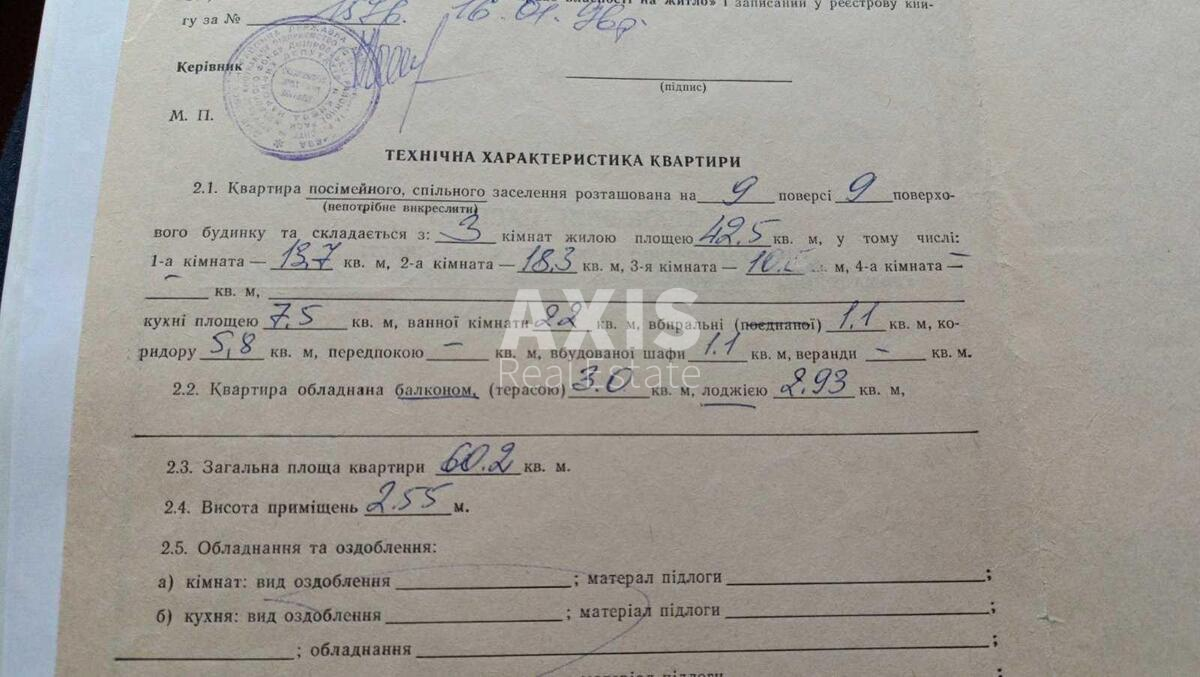 власності на житло» і записаний у реєстрову кни-
гу за № 1576. 16 01.96р
Керівник
(підпис)
М. П.
ТЕХНІЧНА ХАРАКТЕРИСТИКА КВАРТИРИ
2.1. Квартира посімейного, спільного заселення розташована на 9 поверсі 9 поверхо-
(непотрібне викреслити)
вого будинку та складається з: 3 кімнат жилою площею 42.5 кв. м, у тому числі:
1-а кімната — 13,7 кв. м, 2-а кімната — 18,3 кв. м, 3-я кімната — 10. м, 4-а кімната —
— кв. м, —
кухні площею 7.5 кв. м, ванної кімнати 2.2 кв. м, вбиральні (поєднаної) 1.1 кв. м, ко-
ридору 5,8 кв. м, передпокою — кв. м, вбудованої шафи 1.1 кв. м, веранди — кв. м.
AXIS
Real Estate
2.2. Квартира обладнана балконом, (терасою) 3.0 кв. м, лоджією 2.93 кв. м,
2.3. Загальна площа квартири 60.2 кв. м.
2.4. Висота приміщень 2.55 м.
2.5. Обладнання та оздоблення:
а) кімнат: вид оздоблення ; матерал підлоги ;
б) кухня: вид оздоблення ; матеріал підлоги ;
; обладнання ;
матеріал підлоги ;